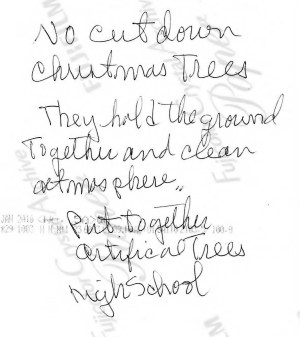 No cut down
christmas Trees
They hold the ground
Together and clean
actmosphere,,
Put together
artifical Trees
high School